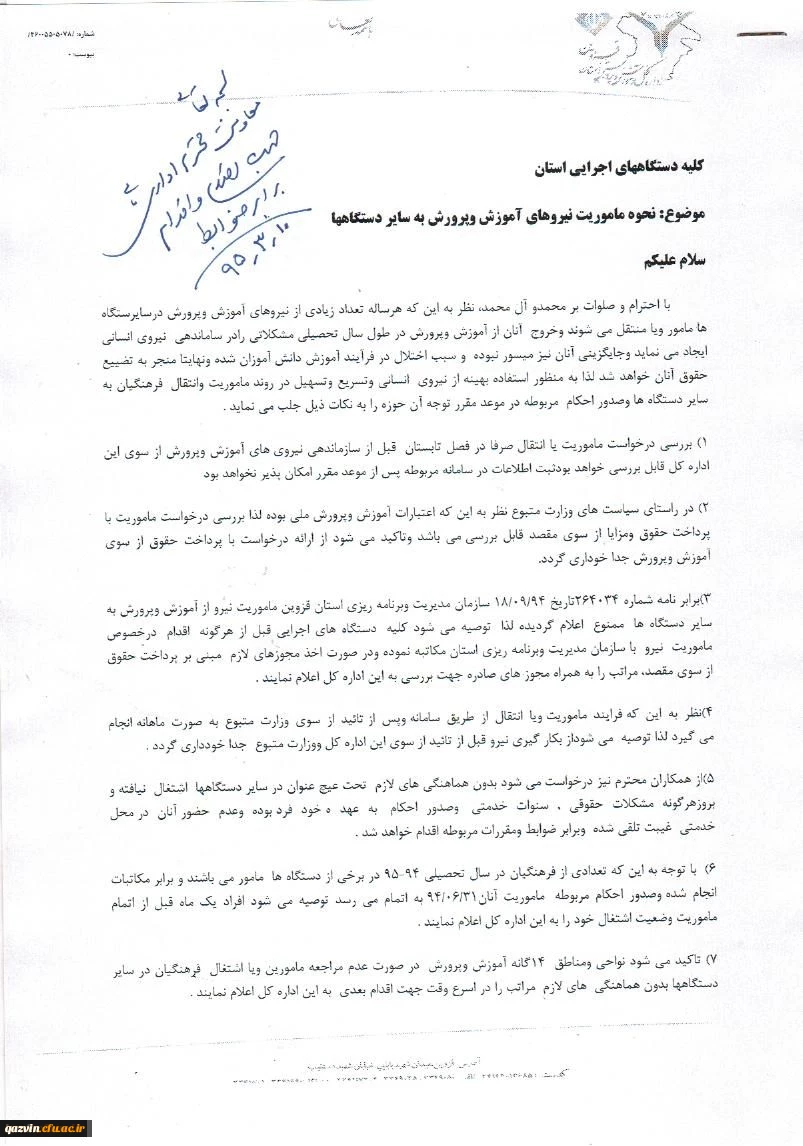 باسمه تعالی
شماره: ۲۶۰۰۵۵۰۵۰۷۸/
پیوست: ۰
معاونت محترم اداری
جهت و اقدام
برابر ضوابط
۹۵-۳-۱۰
کلیه دستگاههای اجرایی استان
موضوع: نحوه ماموریت نیروهای آموزش وپرورش به سایر دستگاهها
سلام علیکم
با احترام و صلوات بر محمدو آل محمد، نظر به این که هرساله تعداد زیادی از نیروهای آموزش وپرورش درسایرستگاه
ها مامور ویا منتقل می شوند وخروج آنان از آموزش وپرورش در طول سال تحصیلی مشکلاتی رادر ساماندهی نیروی انسانی
ایجاد می نماید وجایگزینی آنان نیز میسور نبوده و سبب اختلال در فرآیند آموزش دانش آموزان شده ونهایتا منجر به تضییع
حقوق آنان خواهد شد لذا به منظور استفاده بهینه از نیروی انسانی وتسریع وتسهیل در روند ماموریت وانتقال فرهنگیان به
سایر دستگاه ها وصدور احکام مربوطه در موعد مقرر توجه آن حوزه را به نکات ذیل جلب می نماید .
۱) بررسی درخواست ماموریت یا انتقال صرفا در فصل تابستان قبل از سازماندهی نیروی های آموزش وپرورش از سوی این
اداره کل قابل بررسی خواهد بودثبت اطلاعات در سامانه مربوطه پس از موعد مقرر امکان پذیر نخواهد بود
۲) در راستای سیاست های وزارت متبوع نظر به این که اعتبارات آموزش وپرورش ملی بوده لذا بررسی درخواست ماموریت با
پرداخت حقوق ومزایا از سوی مقصد قابل بررسی می باشد وتاکید می شود از ارائه درخواست با پرداخت حقوق از سوی
آموزش وپرورش جدا خوداری گردد.
۳)برابر نامه شماره ۲۶۴۰۳۴تاریخ ۱۸/۰۹/۹۴ سازمان مدیریت وبرنامه ریزی استان قزوین ماموریت نیرو از آموزش وپرورش به
سایر دستگاه ها ممنوع اعلام گردیده لذا توصیه می شود کلیه دستگاه های اجرایی قبل از هرگونه اقدام درخصوص
ماموریت نیرو با سازمان مدیریت وبرنامه ریزی استان مکاتبه نموده ودر صورت اخذ مجوزهای لازم مبنی بر پرداخت حقوق
از سوی مقصد، مراتب را به همراه مجوز های صادره جهت بررسی به این اداره کل اعلام نمایند .
۴)نظر به این که فرایند ماموریت ویا انتقال از طریق سامانه وپس از تائید از سوی وزارت متبوع به صورت ماهانه انجام
می گیرد لذا توصیه می شوداز بکار گیری نیرو قبل از تائید از سوی این اداره کل ووزارت متبوع جدا خودداری گردد .
۵)از همکاران محترم نیز درخواست می شود بدون هماهنگی های لازم تحت عیچ عنوان در سایر دستگاهها اشتغال نیافته و
بروزهرگونه مشکلات حقوقی ، سنوات خدمتی وصدور احکام به عهد ه خود فرد بوده وعدم حضور آنان در محل
خدمتی غیبت تلقی شده وبرابر ضوابط ومقررات مربوطه اقدام خواهد شد .
۶) با توجه به این که تعدادی از فرهنگیان در سال تحصیلی ۹۴-۹۵ در برخی از دستگاه ها مامور می باشند و برابر مکاتبات
انجام شده وصدور احکام مربوطه ماموریت آنان۹۴/۰۶/۳۱ به اتمام می رسد توصیه می شود افراد یک ماه قبل از اتمام
ماموریت وضعیت اشتغال خود را به این اداره کل اعلام نمایند .
۷) تاکید می شود نواحی ومناطق ۱۴گانه آموزش وپرورش در صورت عدم مراجعه مامورین ویا اشتغال فرهنگیان در سایر
دستگاهها بدون هماهنگی های لازم مراتب را در اسرع وقت جهت اقدام بعدی به این اداره کل اعلام نمایند .
qazvin.cfu.ac.ir